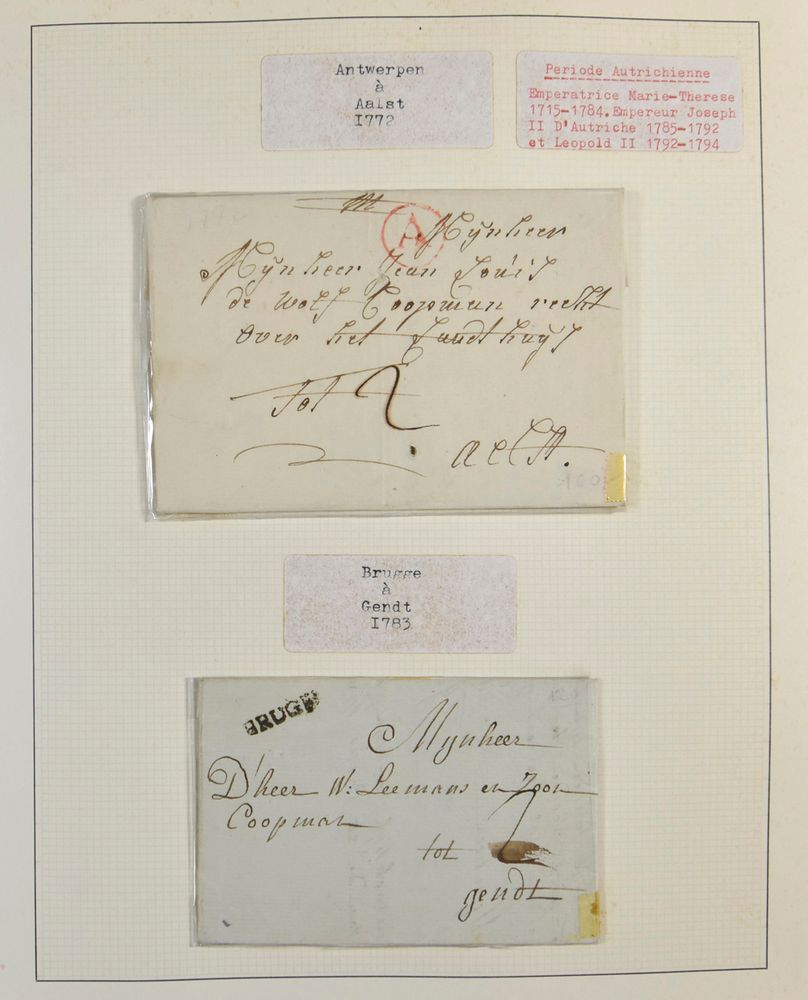 Antwerpen
à
Aalst
I772
Periode Autrichienne
Emperatrice Marie-Therese
1715-1784.Empereur Joseph
II D'Autriche 1785-1792
et Leopold II 1792-1794
A
Mijnheer
Mijnheer Jean Louis
de Wolf Coopman recht
over het Landthuijs
Tot
2
aelst.
100
Brugge
à
Gendt
I783
BRUGE
Mijnheer
D'heer W: Leemans en Zoon
Coopman
tot
gendt